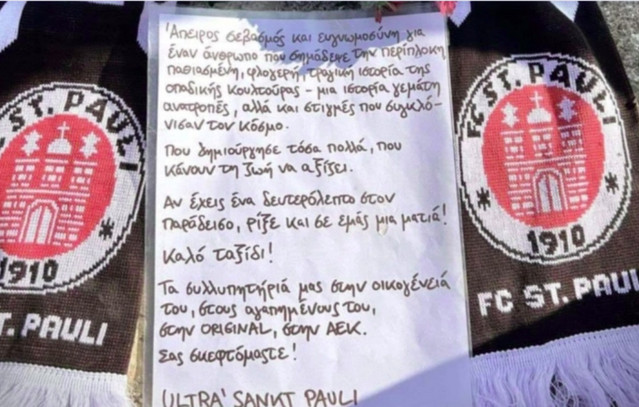 Άπειρος σεβασμός και ευγνωμοσύνη για
έναν άνθρωπο που σημάδεψε την περίπλοκη
παθιασμένη, φλογερή, τραγική ιστορία της
οπαδικής κουλτούρας - μια ιστορία γεμάτη
ανατροπές, αλλά και στιγμές που συγκλό-
νισαν τον κόσμο.
Που δημιούργησε τόσα πολλά, που
κάνουν τη ζωή να αξίζει.
Αν έχεις ένα δευτερόλεπτο στον
παράδεισο, ρίξε και σε εμάς μια ματιά!
Καλό ταξίδι!
Τα συλλυπητήριά μας στην οικογένειά
του, στους αγαπημένους του,
στην ORIGINAL, στην ΑΕΚ.
Σας σκεφτόμαστε!
ULTRA' SANKT PAULI
ST. PAULI
1910
T. PAULI
FC ST. PAULI
1910
FC ST. PAUL